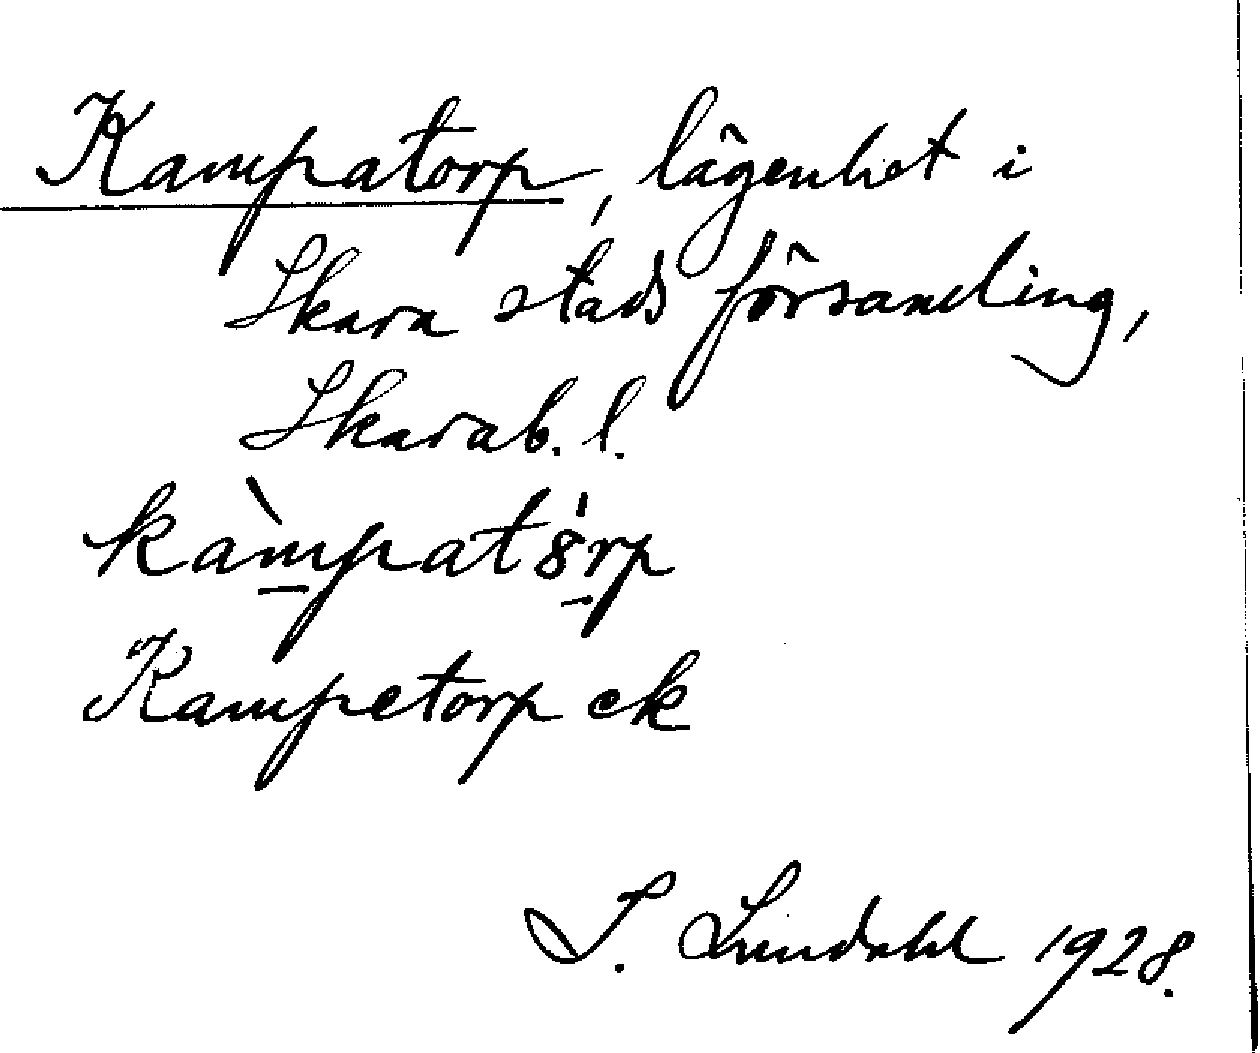 Kampatorp, lägenhet i
Skara stads församling,
Skarab. l.
kàmpat8́rp
Kampetorp ek
S. Lundahl 1928.